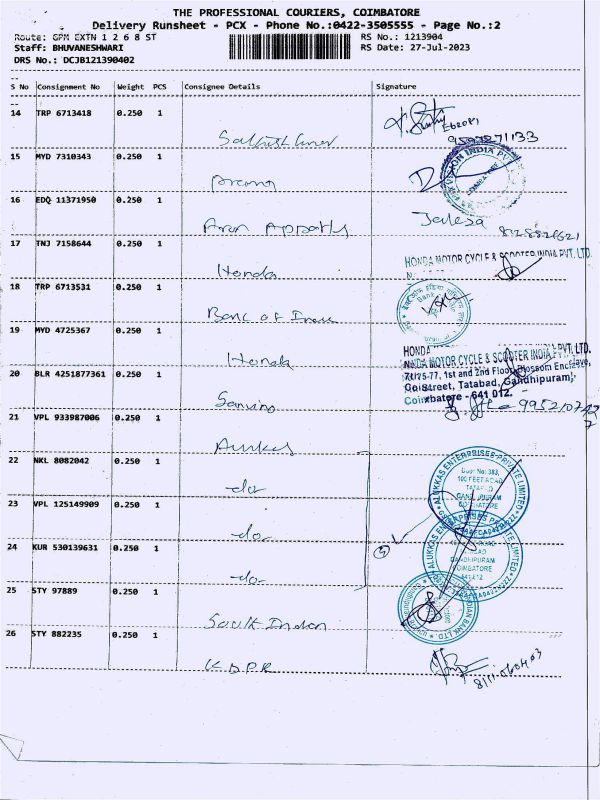 THE PROFESSIONAL COURIERS, COIMBATORE
Delivery Runsheet - PCX - Phone No.:0422-3505555 - Page No.:2
Route: GPM EXTN 1 2 6 8 ST RS No.: 1213904
Staff: BHUVANESHWARI RS Date: 27-Jul-2023
DRS No.: DCJB121390402
S No Consignment No Weight PCS Consignee Details Signature
14 TRP 6713418 0.250 1
15 MYD 7310343 0.250 1
16 EDQ 11371950 0.250 1
17 TNJ 7158644 0.250 1
Honda
HONDA MOTOR CYCLE & SCOOTER INDIA PVT. LTD.
18 TRP 6713531 0.250 1
Bank of India
19 MYD 4725367 0.250 1
Honda
HONDA MOTOR CYCLE & SCOOTER INDIA PVT. LTD.
71/75-77, 1st and 2nd Floor, Blossom Enclave,
Street, Tatabad, Gandhipuram,
Coimbatore - 641 012.
20 BLR 4251877361 0.250 1
21 VPL 933987006 0.250 1
22 NKL 8082042 0.250 1
-do-
ALUKKAS ENTERPRISES PRIVATE LIMITED
100 FEET ROAD
TATABAD
GANDHIPURAM
COIMBATORE
23 VPL 125149909 0.250 1
-do-
24 KUR 530139631 0.250 1
-do-
GANDHIPURAM
COIMBATORE
25 STY 97889 0.250 1
South Indian
26 STY 882235 0.250 1
KDPR